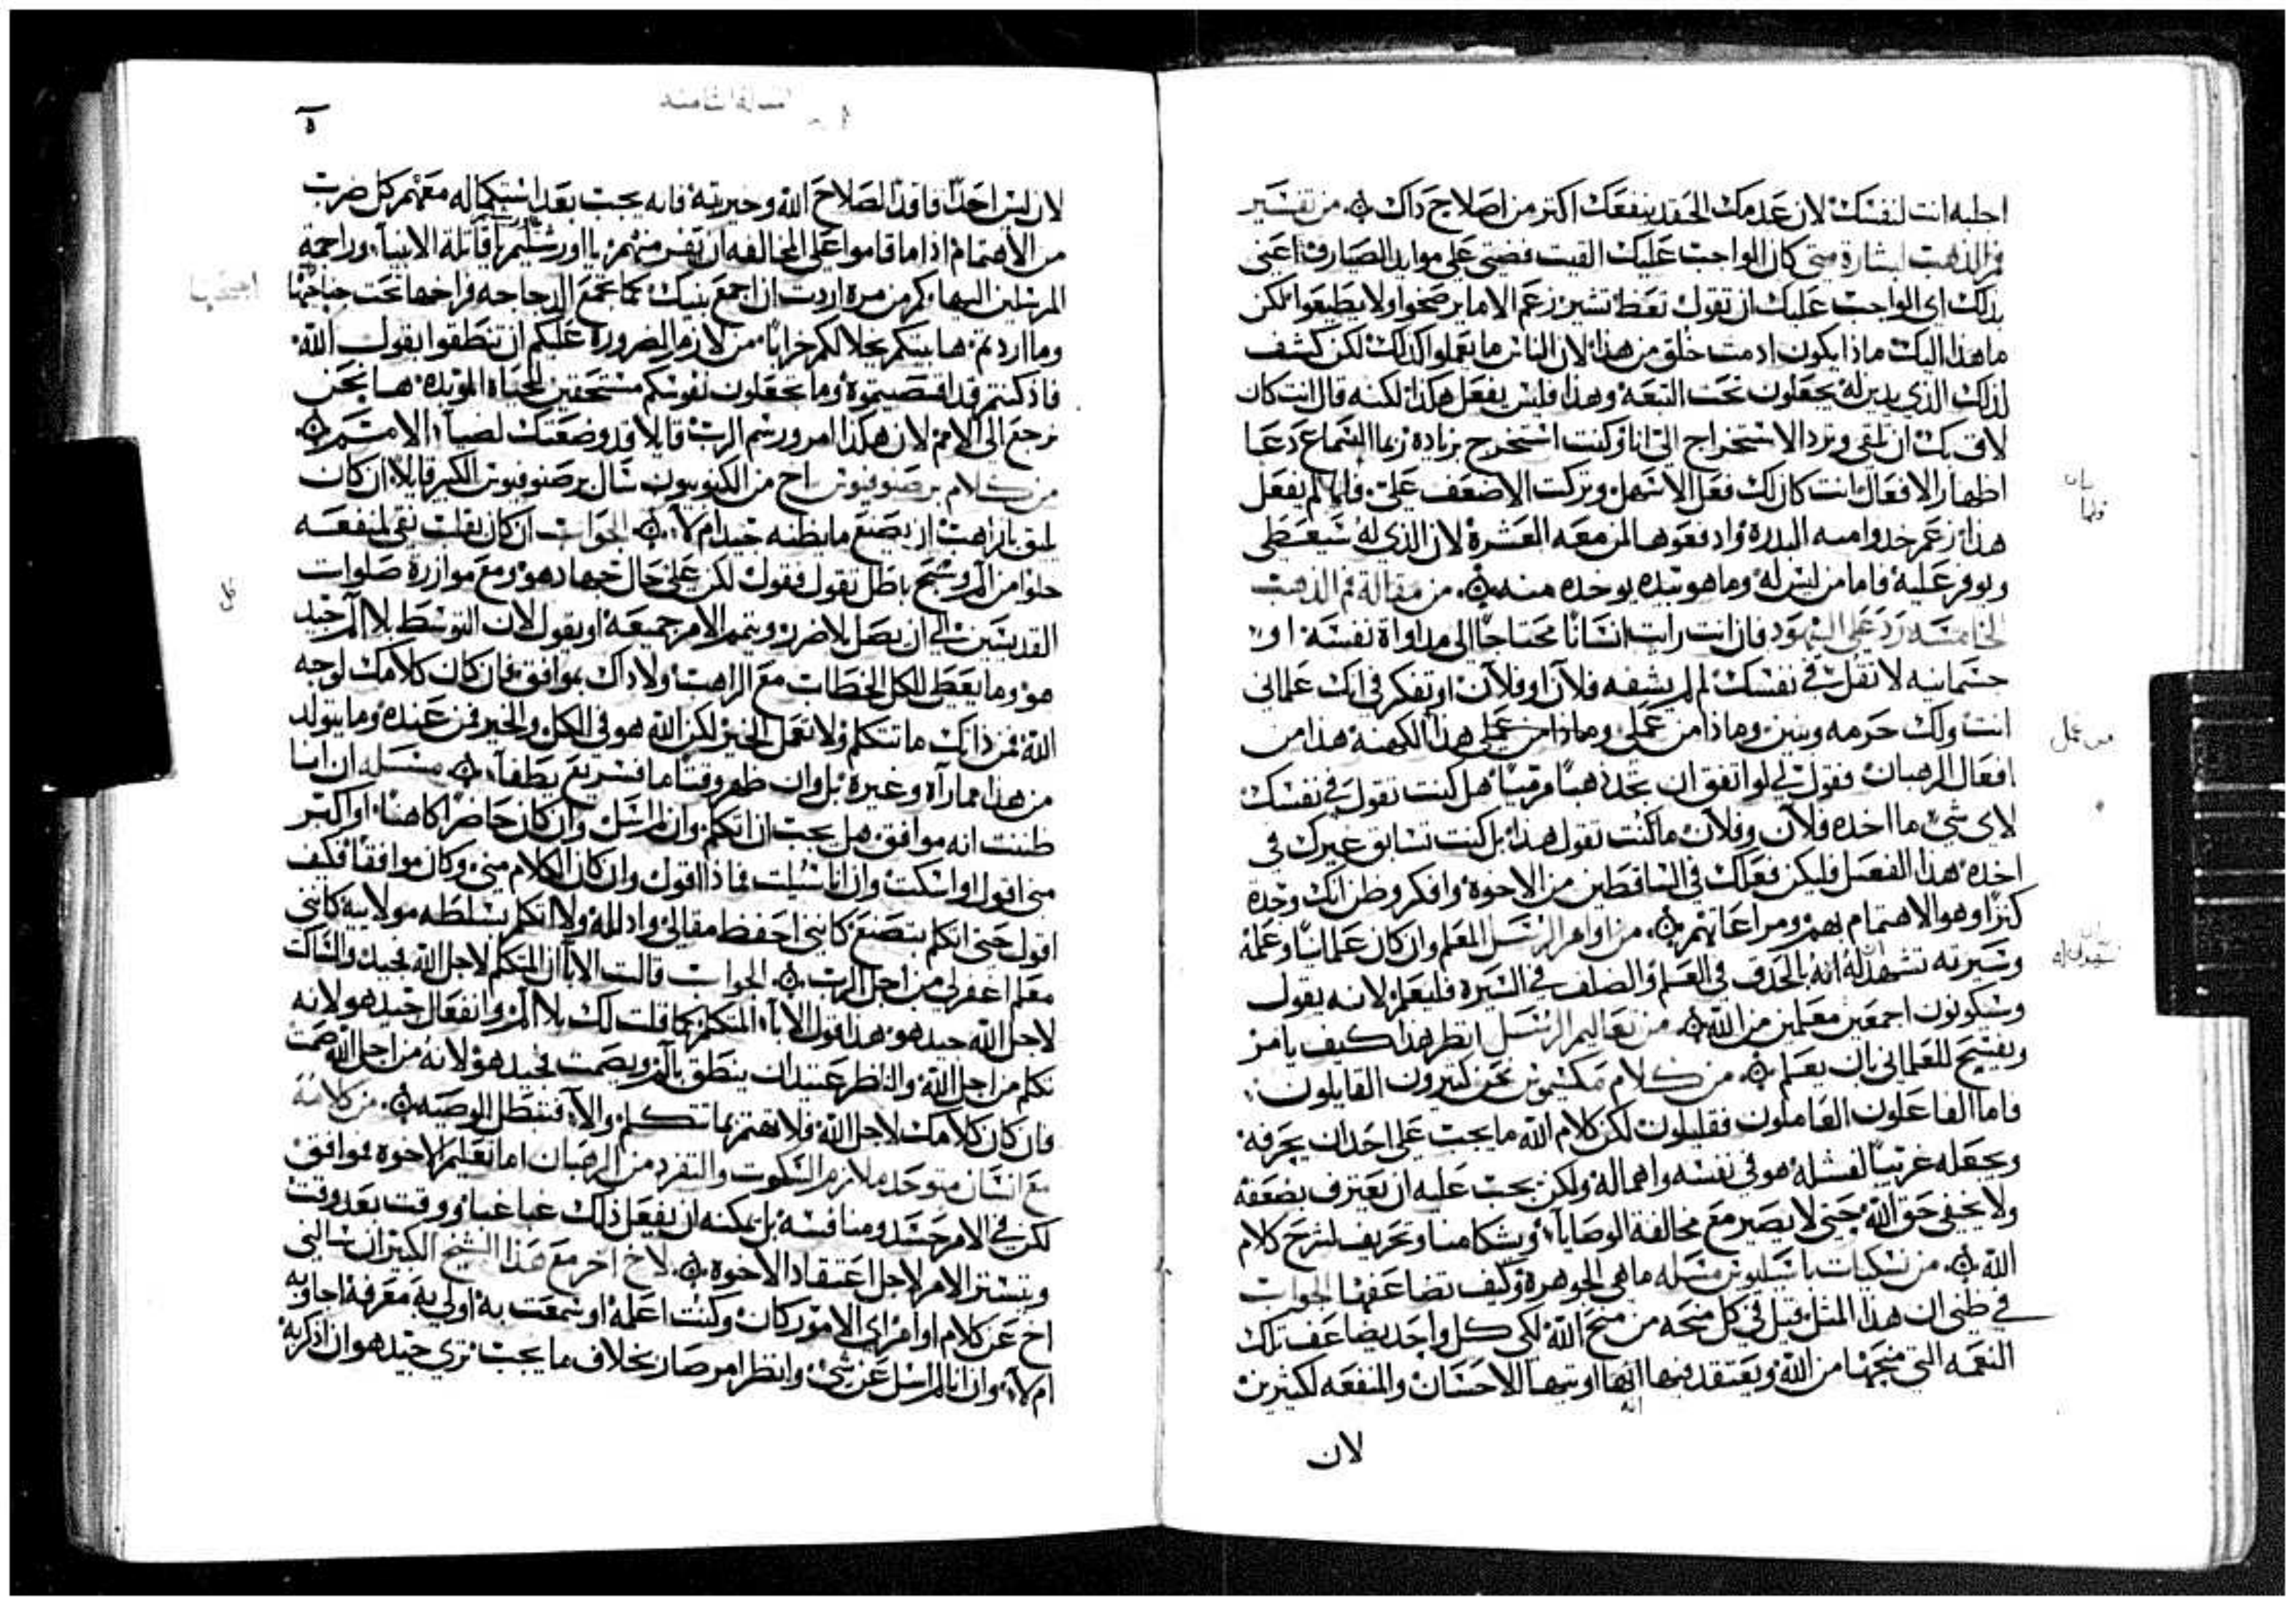 اجلبه انت لنفسك لان عدمك الحقد ينفعك اكتر من اصلاح داك ܀ من تفسير
فم الذهب لبشارة متى كان الواجب عليك القيت فضتى على موايد الصيارف اعنى
بذلك اى الواجب عليك ان تقول تعظ تشير زعم الاما يرضخوا ولا يطيعوا لكن
ما هذا اليك ماذا يكون ادمث خلق من هذا لان الناس ما يعملوا كذلك لكن كشف
لذلك الذى يدين له يجعلون تحت التبعه وهدا فليس يفعل هكذا لكنه قال انت كان
لاق بك ان تلقى وترد الاستخراج الى انا وكنت استخرج بزياده زعما السماع دعا
اظهار الافعال انت كان لك فعل الاسهل وتركت الاصعف على فلما لم يفعل
هذا زعم خدوا منه البدره وادفعوها لمن معه العشرة لان الذى له سيعطى
ويوفر عليه فاما من ليس له وما هو بيده يوخده منه ܀ من مقالة فم الذهب
الخامسه رد على اليهود فان انت رايت انسانا محتاجا الى مداواة نفسه او
جسمانيه لا تقل فى نفسك لم لم يشفه فلان او فلان او تفكر فى انك علمانى
انت ولك حرمه وبنين وماذا من عملى وماذا من عملى هذا الكهنة هذا من
افعال الرهبان فقول لى لو اتفق ان تجد ذهبا مرميا هل كنت تقول فى نفسك
لاى شى ما اخده فلان وفلان ما كنت تقول هذا بل كنت تسابق غيرك فى
اخده هذا الفعل فليكن فعلك فى الساقطين من الاخوة وافكر وظن انك وجدة
كنزا وهو الاهتمام بهم ومراعاتهم ܀ من اوامر الرسل المعلم وان كان علمانيا وعمله
وسيرته تشهد له انه بالحدق فى العلم والصلف فى السيرة فليعلم لانه يقول
وسيكونون اجمعين معلمين من الله ܀ من تعاليم الرسل انظر هذا كيف يامر
ويفسح للعلمانى بان يعلم ܀ من كلام مكسيموس نحن كتيرون القايلون
فاما الفاعلون العاملون فقليلون لكن كلام الله ما يجب على احد ان يحرفه
ويجعله غريبا لفشله هو فى نفسه واهماله ولكن يجب عليه ان يعترف بضعفه
ولا يخفى حق الله حتى لا يصير مع مخالفة الوصايا وتحريف لشرح كلام
الله ܀ من نسكيات باسيليوس مسله ما هى الجوهرة وكيف تضاعفها الجواب
فى ظنى ان هذا المثل قيل فى كل منحه من منح الله لكى كل واحد يضاعف تلك
النعمه التى منحها من الله ويعتقد فيها انها اوتيها للاحسان والمنفعه لكثيرين
لان
لان ليس احدا فاقدا لصلاح الله وخيريته فانه يجب بعد استكماله معهم كل ضرب
من الاهتمام اذا ما قاموا على المخالفه ان تفر منهم يا اورشليم يا قاتلة الانبيا وراجمة
المرسلين اليها وكم من مرة اردت ان اجمع بنيك كما تجمع الدجاجه فراخها تحت جناحها
وما اردتم ها بيتكم يخلا لكم خرابا من لازم الضرورة عليكم ان تنطقوا بقول الله
فاذ كنتم قد اقصيتموه وما تجعلون نفوسكم مستحقين للحياه الموبده ها نحن
نرجع الى الامم لان هكذا امر ورسم الرب قايلا قد وضعتك لضيا الامم ܀
من كلام برصنوفيوس اخ من الكنوبيون سال برصنوفيوس الكبير قايلا ان كان
يليق بالراهب ان يصنع ما يظنه جيد ام لا ܀ الجواب ان كان بقلب نقى لمنفعه
خلوا من الم وسبح باطل تقول فقول لكن على حال جهاد هو ومع موازرة صلوات
القديسين الى ان يصل بلا ضرر ويتمم الامر جميعه او يقول لان التوسط بلا الم جيد
هو وما يعطى للكل الخطاب مع الراهب ولا داك بموافق فان كان كلامك لوجه
الله فمن ذاتك ما تتكلم ولا تعمل الخير لكن الله هو فى الكل والخير فمن عنده وما يتولد
من هدا مما راه وغيره بل وان ظهر وقتا ما فسريع يطفا ܀ مسله ان انسا
ظننت انه موافق هل يجب ان اتكلم وان لم اسل وان كان حاضرا كاهنا او اكبر
منى اقول او اسكت وان انا سيلت فماذا اقول وان كان الكلام منى وكان موافقا فكيف
اقول حتى اتكلم بتصنع كاننى احفظ مقالى واد له ولا اتكلم بسلطه مولاييه كاننى
معلم اغفر لى من اجل الرب ܀ الجواب قالت الابا ان المتكلم لاجل الله فجيد والساكت
لاجل الله جيد هو هذا قول الابا المتكلم كما قلت لك بلا الم وانفعال جيد هو لانه
تكلم من اجل الله والناظر عتيد ان ينطق بالم ويصمت فجيد هو لانه من اجل الله صمت
فان كان كلامك لاجل الله فلا تهتم بما تتكلم والا فتبطل الوصيه ܀ من كلامه
مع انسان متوحد ملازم السكوت والتفرد من الرهبان اما تعليم الاخوة فوافق
لكن فى الامر حسد ومنافسه بل يمكنه ان يفعل ذلك غبا غبا ووقت بعد وقت
ويتستر الامر لاجل اعتقاد الاخوة ܀ لاخ اخر مع هذا الشيخ الكبير ان سالنى
اخ عن كلام او امر اى الامور كان وكنت اعلمه او سمعت به اولى به معرفه اجاوبه
ام لا وان انا لم اسل عن شى وانظر امر صار بخلاف ما يجب ترى جيد هو ان اذكر به